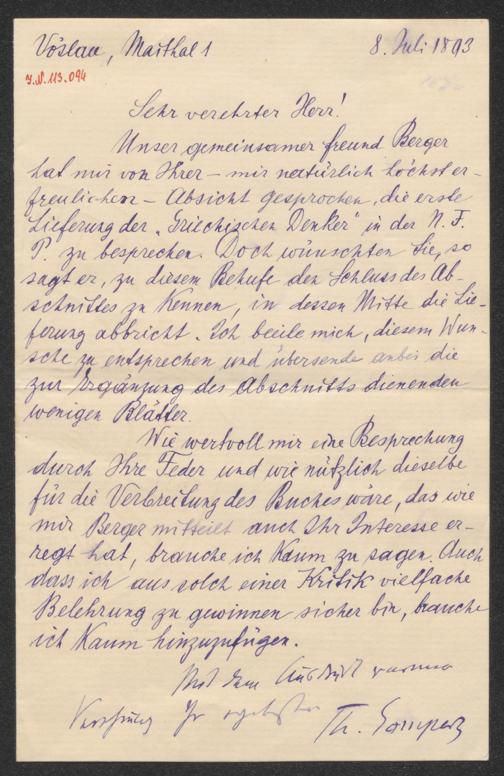 Vöslau, Maithal 1
8. Juli 1893
J.N. 113.094
Sehr verehrter Herr!
Unser gemeinsamer freund Berger
hat mir von Ihrer – mir natürlich höchst er-
freulichen – Absicht gesprochen, die erste
Lieferung der „Griechischen Denker" in der N. F.
P. zu besprechen. Doch wünschten Sie, so
sagt er, zu diesem Behufe den Schluss des Ab-
schnittes zu kennen, in dessen Mitte die Lie-
ferung abbricht. Ich beeile mich, diesem Wun-
sche zu entsprechen und übersende anbei die
zur Ergänzung des Abschnitts dienenden
wenigen Blätter.
Wie wertvoll mir eine Besprechung
durch Ihre Feder und wie nützlich dieselbe
für die Verbreitung des Buches wäre, das wie
mir Berger mitteilt auch Ihr Interesse er-
regt hat, brauche ich kaum zu sagen. Auch
dass ich aus solch einer Kritik vielfache
Belehrung zu gewinnen sicher bin, brauche
ich kaum hinzuzufügen.
Mit dem Ausdruck warmer
Verehrung Ihr ergebenster
Th. Gomperz